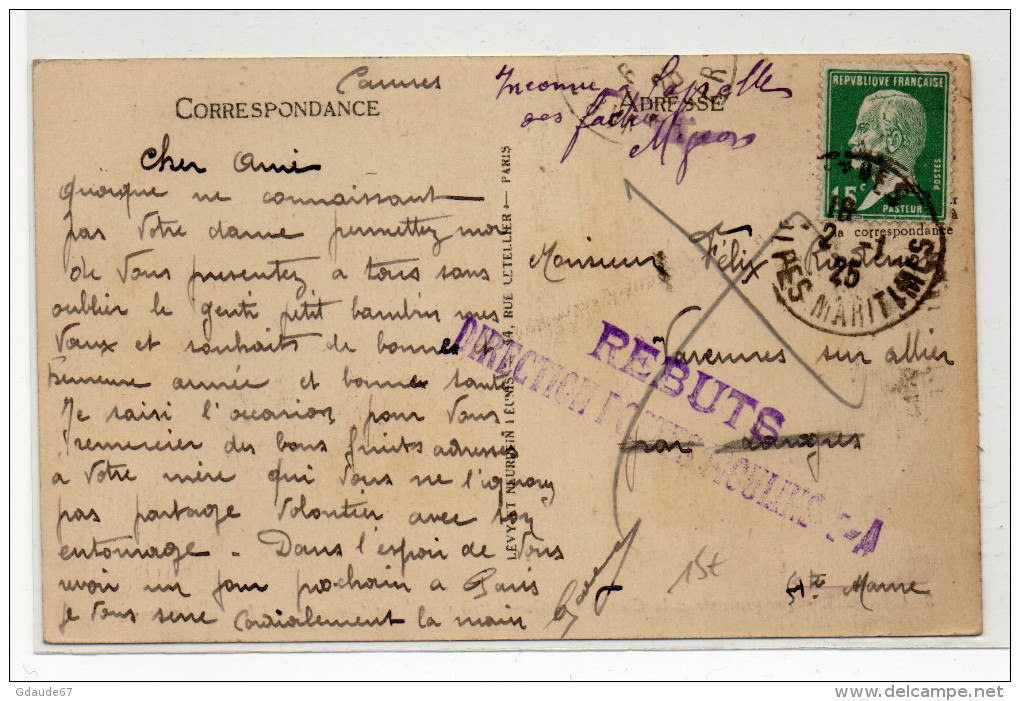 Cannes
CORRESPONDANCE
Cher Ami
quoique ne connaissant
pas votre dame permettez moi
de vous presentez a tous sans
oublier le gentil petit bambin nos
Vœux et souhaits de bonne et
heureuse année et bonne santé
Je saisi l'occasion pour vous
remercier des bons fruits adressés
a votre mère qui vous ne l'ignorez
pas partage volontier avec son
entourage - Dans l'espoir de vous
voir un jour prochain a Paris
je vous serre cordialement la main
LÉVY ET NEURDEIN RÉUNIS, 44, RUE LETELLIER — PARIS
Inconnu à l'appelle
des facteurs
Migeon
ADRESSE
REPVBLIQUE FRANÇAISE
POSTES
15c
PASTEUR
la correspondance
CANNES
18
2 -1
25
ALPES MARITIMES
Monsieur Félix
Varennes sur allier
par Langres
Hte Marne
REBUTS
DIRECTION
15t
Gdaude67
www.delcampe.net